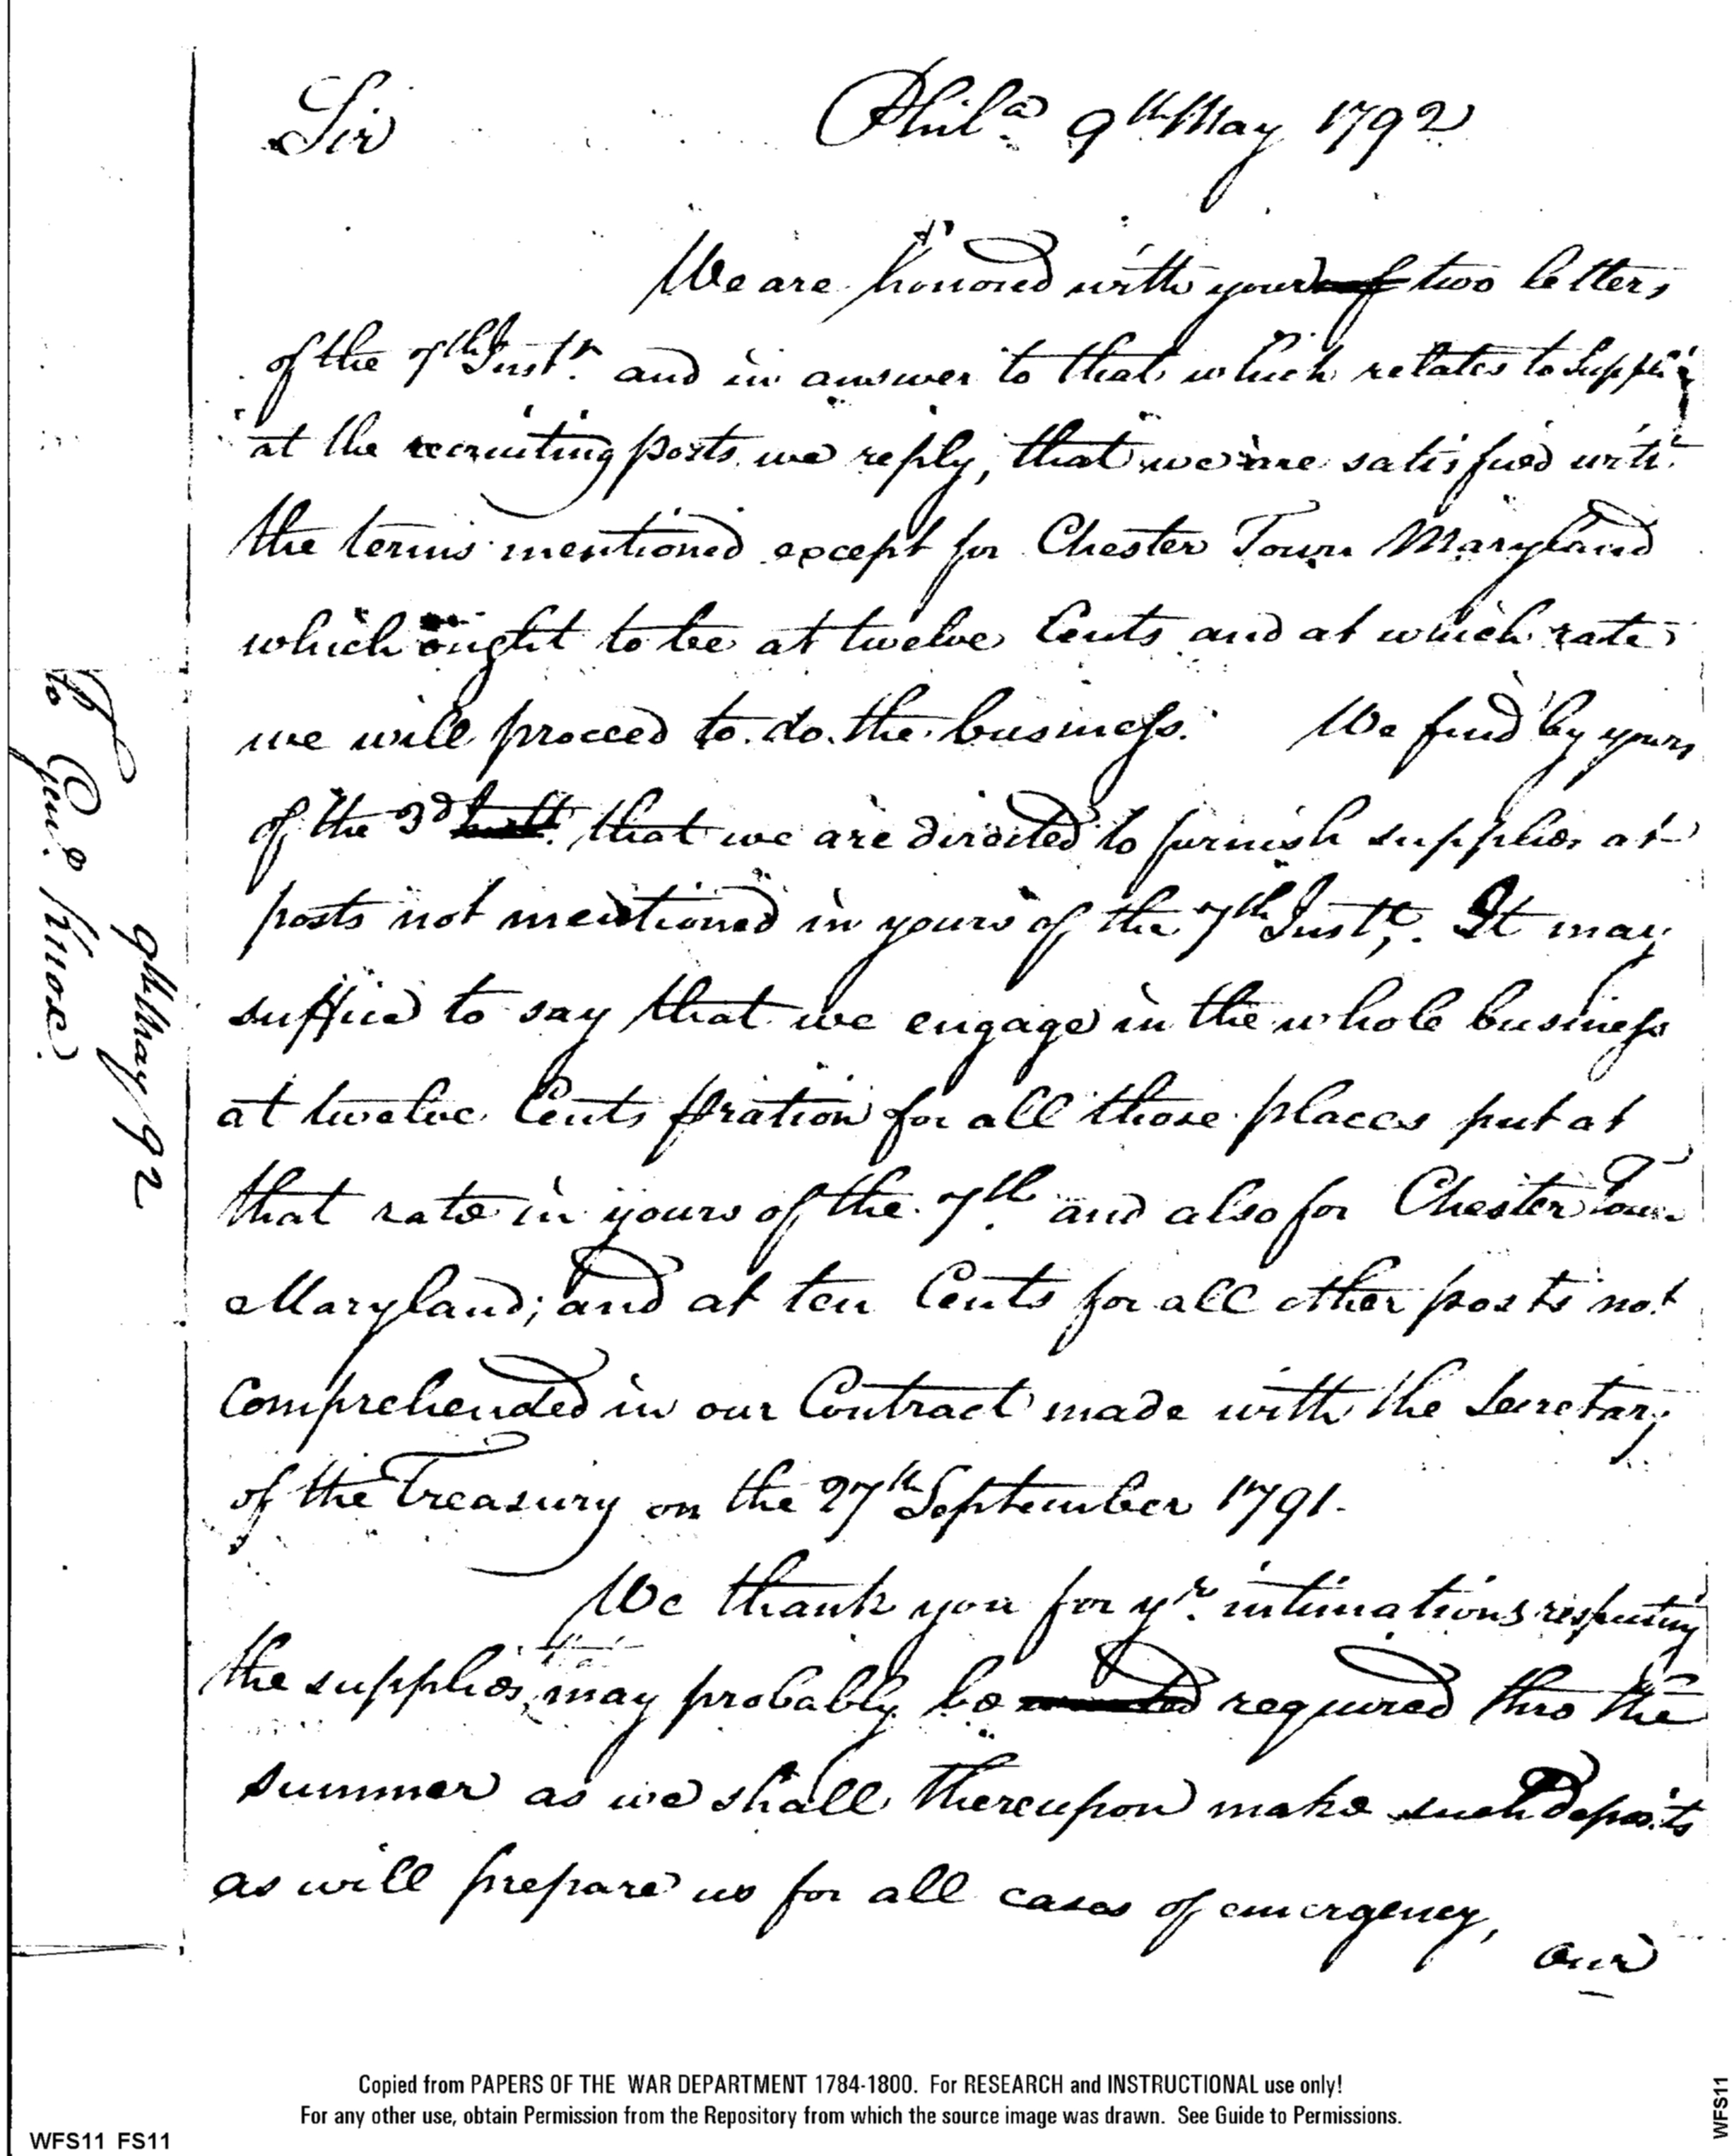 Sir Phila 9th May 1792
We are honored with your two letters
of the 7th Instt. and in answer to that which relates to Supplies
at the recruiting posts we reply, that we are satisfied with
the terms mentioned except for Chester Town Maryland
which ought to be at twelve Cents and at which rate
we will proceed to do the business. We find by yours
of the 3d that we are directed to furnish supplies at
posts not mentioned in yours of the 7th Instt,. It may
suffice to say that we engage in the whole business
at twelve Cents ration for all those places put at
that rate in yours of the 7th. and also for Chester Town
Maryland; and at ten Cents for all other posts not
Comprehended in our Contract made with the Secretary
of the Treasury on the 27th September 1791.
We thank you for yr. intimations respecting
that
the supplies may probably be required thro the
summer as we shall thereupon make such Deposits
as will prepare us for all cases of emergency,
our
to Genl. Knox.
9th May 92
Copied from PAPERS OF THE WAR DEPARTMENT 1784-1800. For RESEARCH and INSTRUCTIONAL use only!
For any other use, obtain Permission from the Repository from which the source image was drawn. See Guide to Permissions.
WFS11 FS11
WFS11